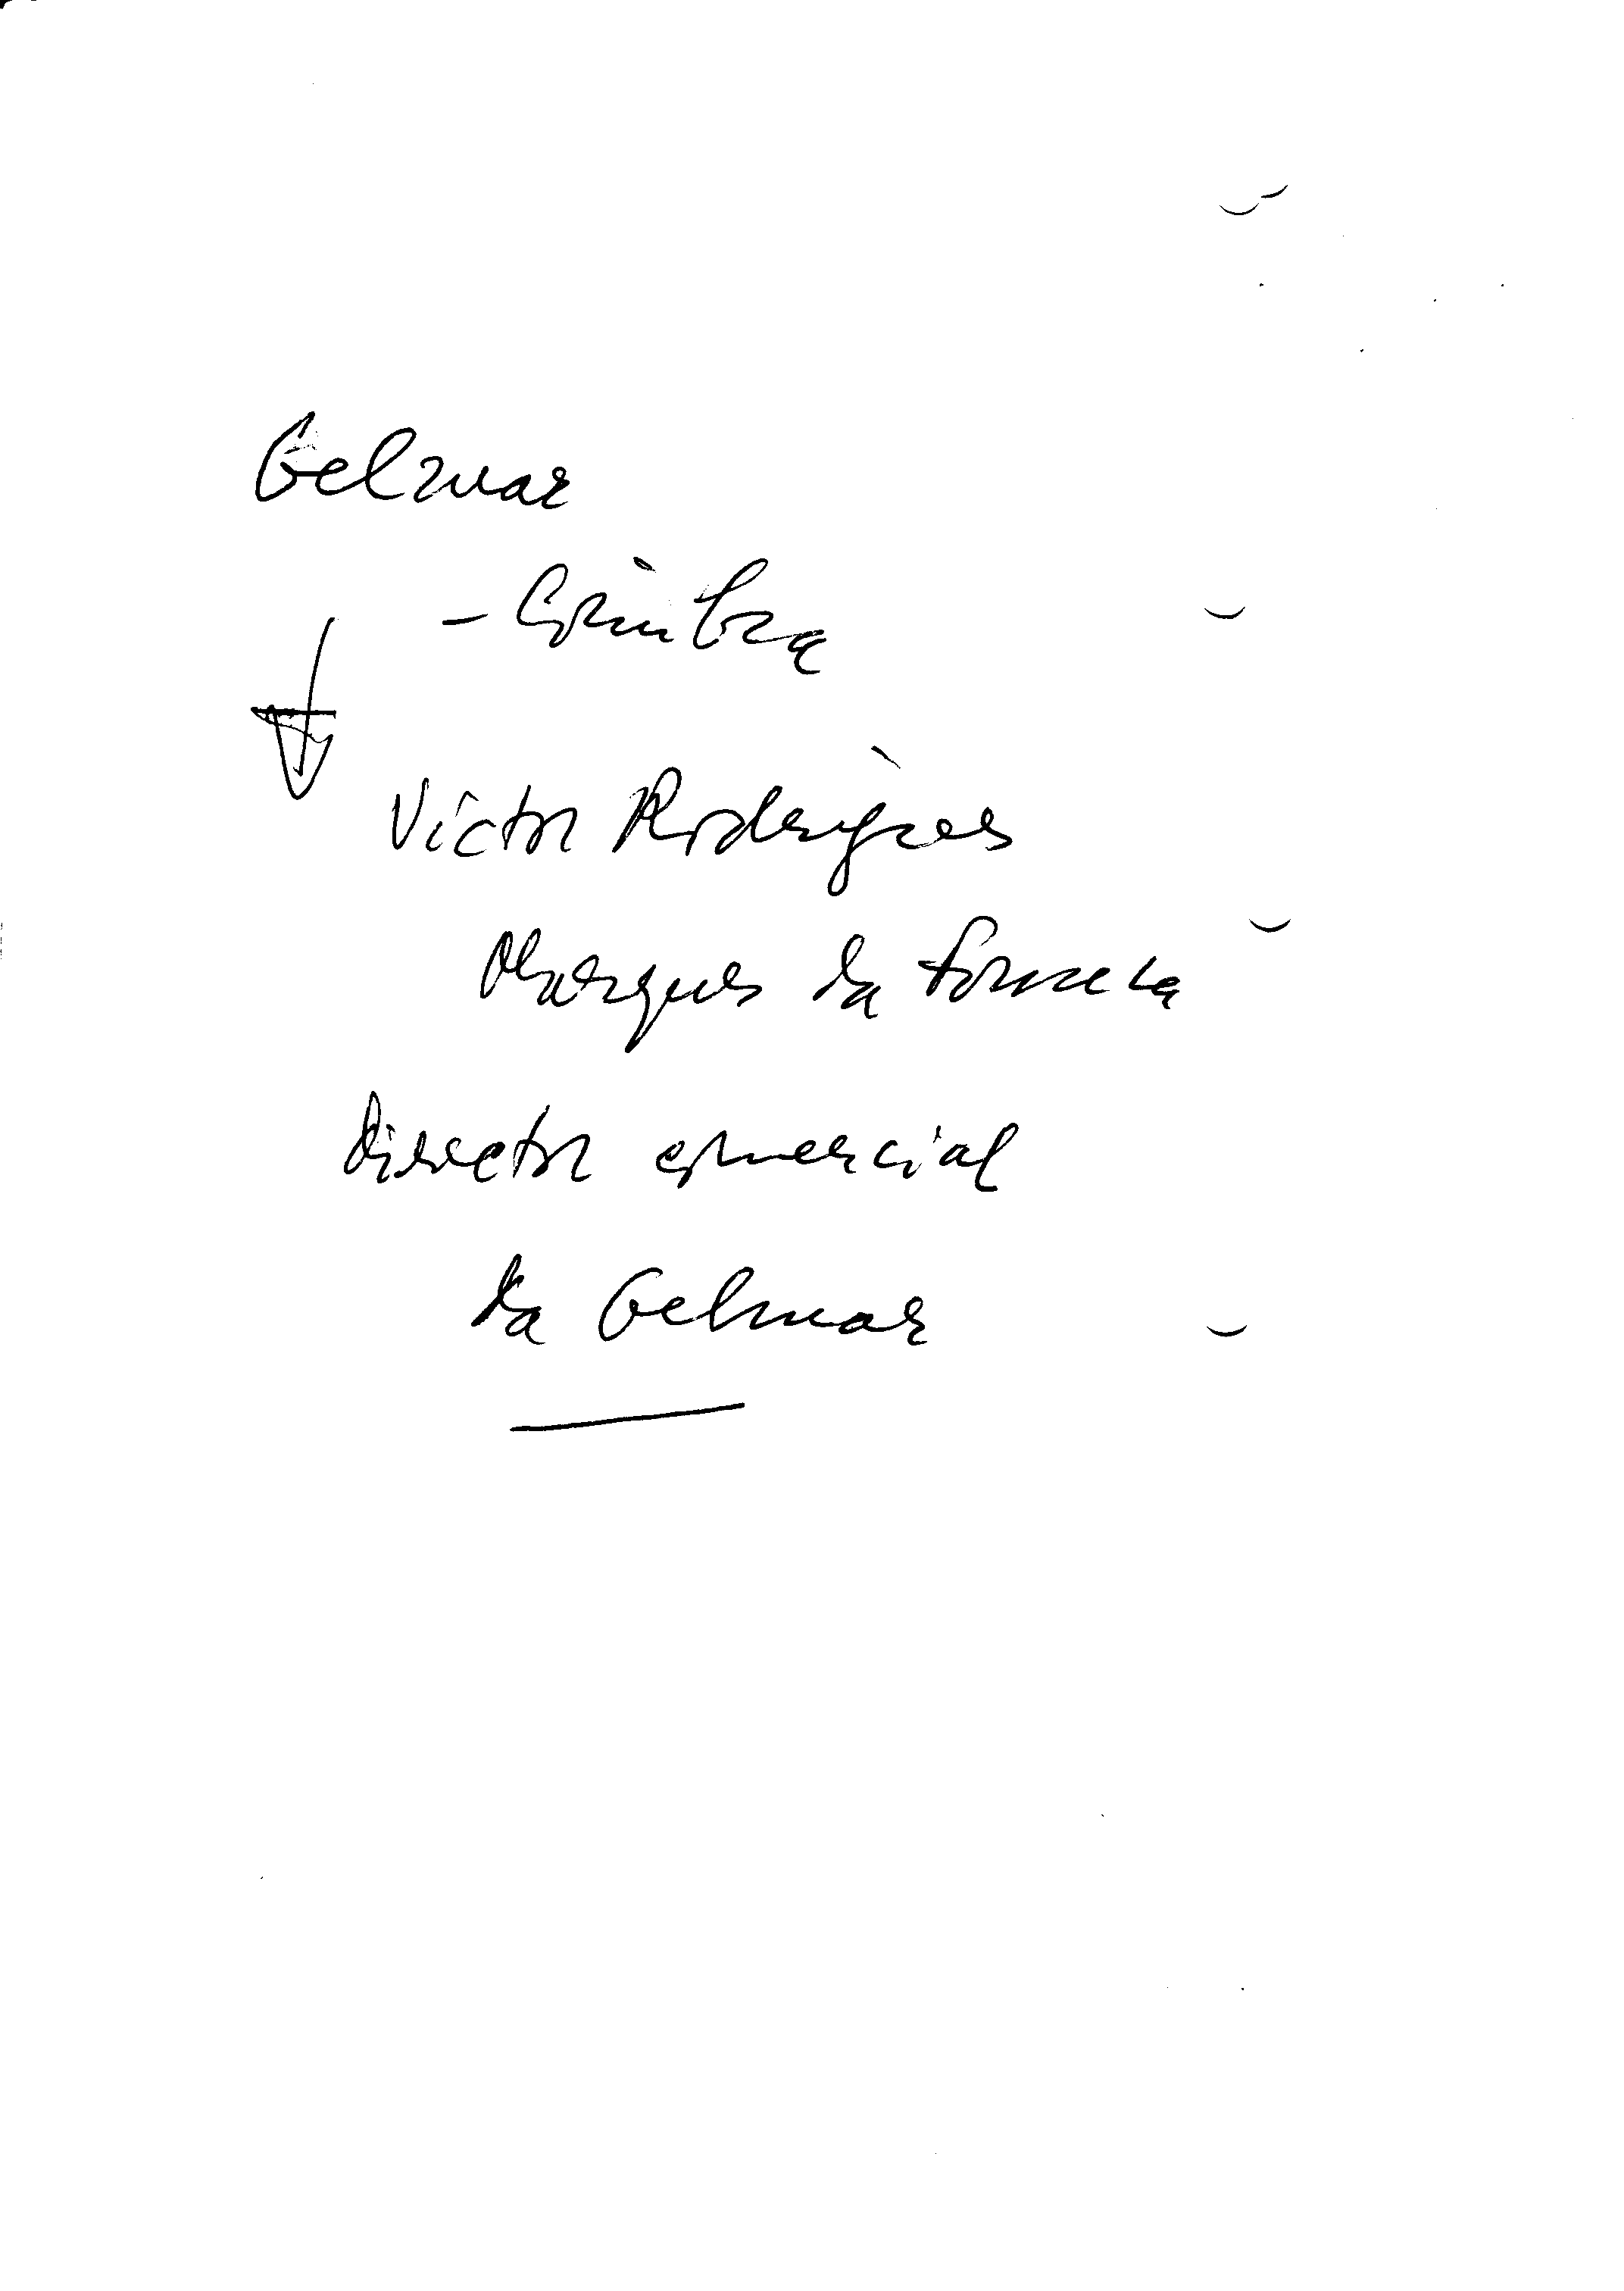 Gelmar
- Coimbra
Victor Rodrigues
Marques da Fonseca
Director comercial
da Gelmar